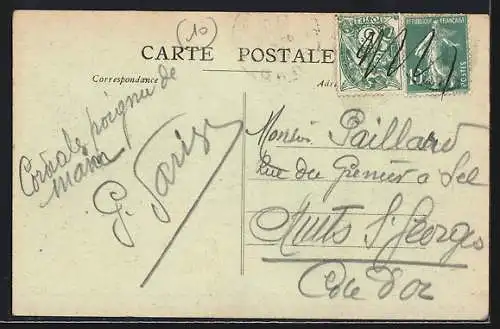 10
CARTE POSTALE
Correspondance
REPUBLIQUE FRANÇAISE
POSTES
Cordiale poignée de
main
G. Paris
Monsieur Paillard
Rue du Grenier a Sel
Nuits St Georges
Cote d'or